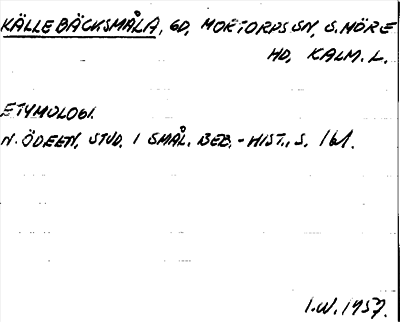 KÄLLEBÄCKSMÅLA, GD, MORTORPS SN, S. MÖRE
HD, KALM. L.
ETYMOLOGI.
N. ÖDEEN, STUD. I SMÅL. BEB.-HIST., S. 161.
I.W. 1957.